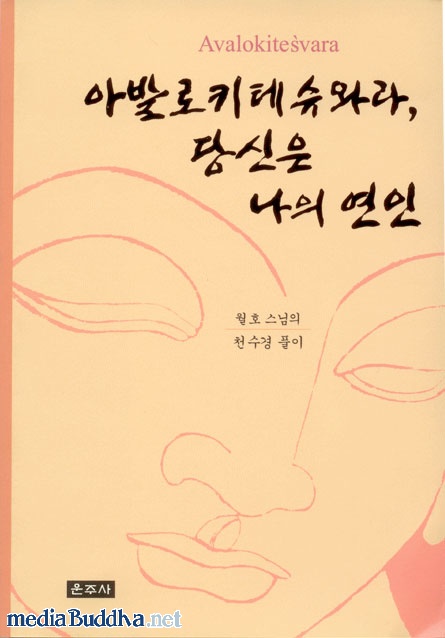 Avalokiteṡvara
아발로키테슈와라,
당신은
나의 연인
월호 스님의
천수경 풀이
운주사
mediaBuddha.net